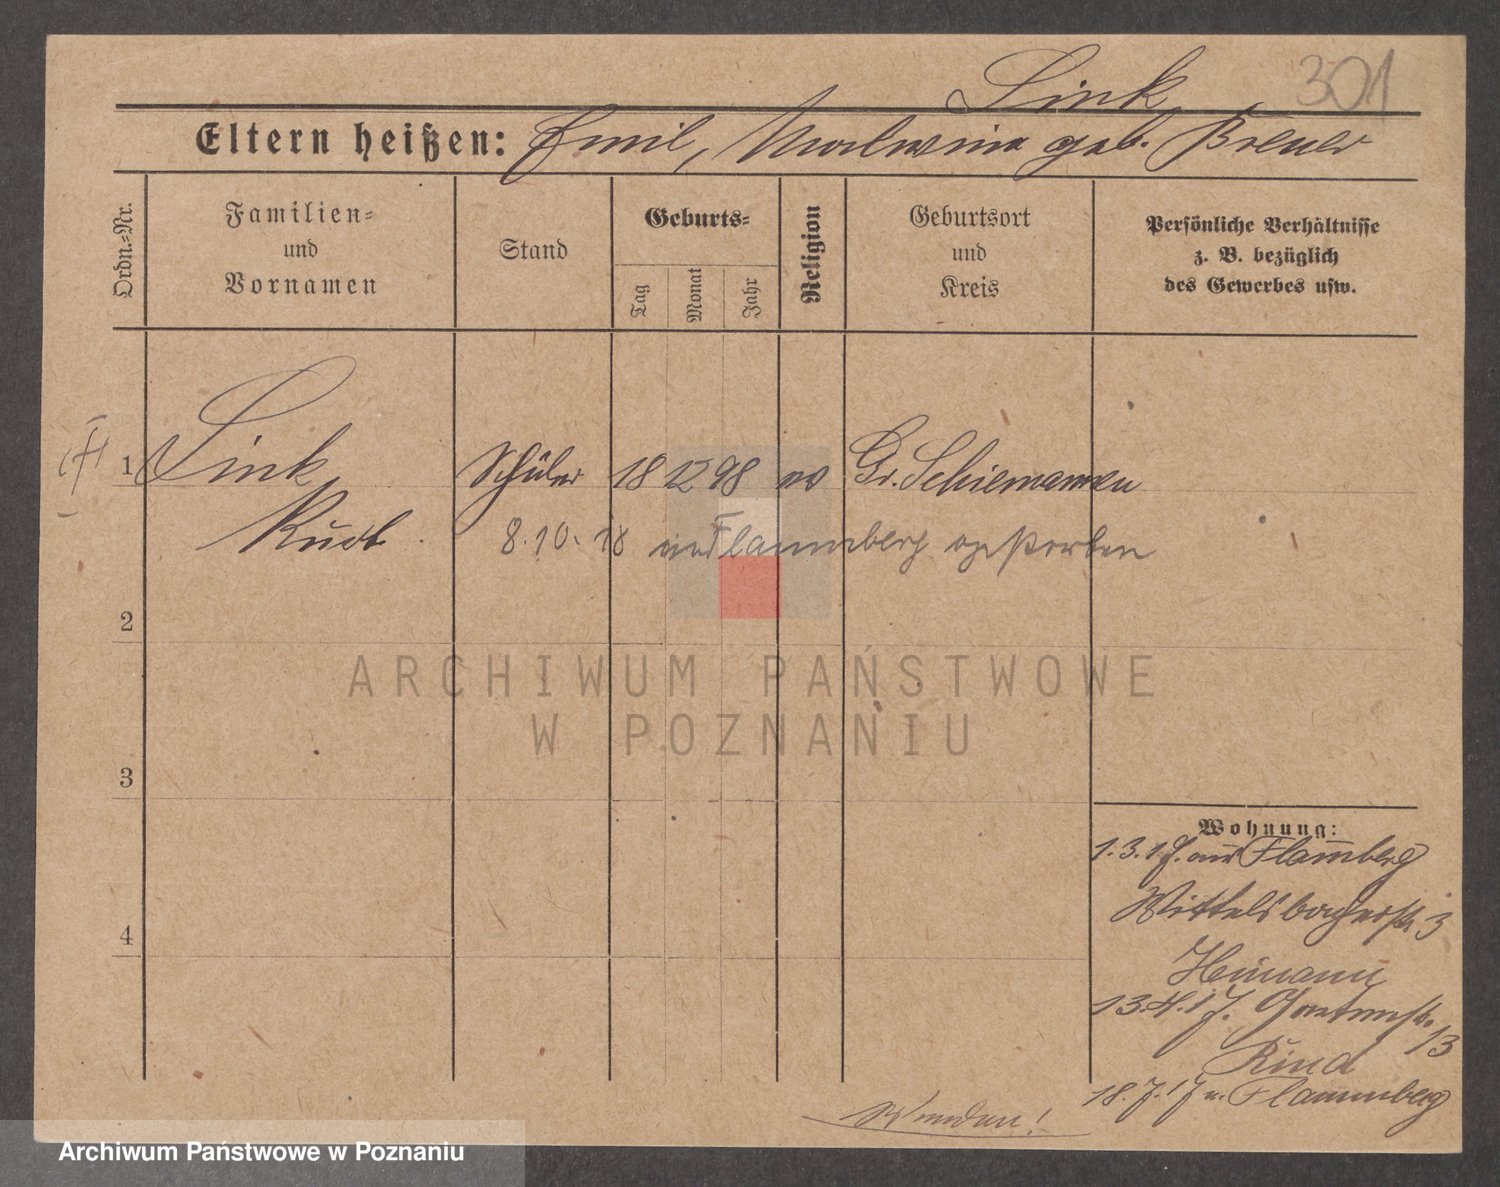 301
Link
Eltern heißen: Emil, Malwina geb. Breuer
Ordn.-Nr.
Familien-
und
Vornamen
Stand
Geburts-
Tag
Monat
Jahr
Religion
Geburtsort
und
Kreis
Persönliche Verhältnisse
z. B. bezüglich
des Gewerbes usw.
1 Link Schüler 18 12 98 ev Gr. Schiemannen
Rud.
8.10.18 in Flammberg gestorben
2
3
4
ARCHIWUM PAŃSTWOWE
W POZNANIU
Wohnung:
1.3.17. aus Flam̄berg
Wittelsbacherstr. 3
Heimann
13.4.17. Gartenstr.
13
Rind
18.7.17 n. Flammberg
Wenden!
Archiwum Państwowe w Poznaniu